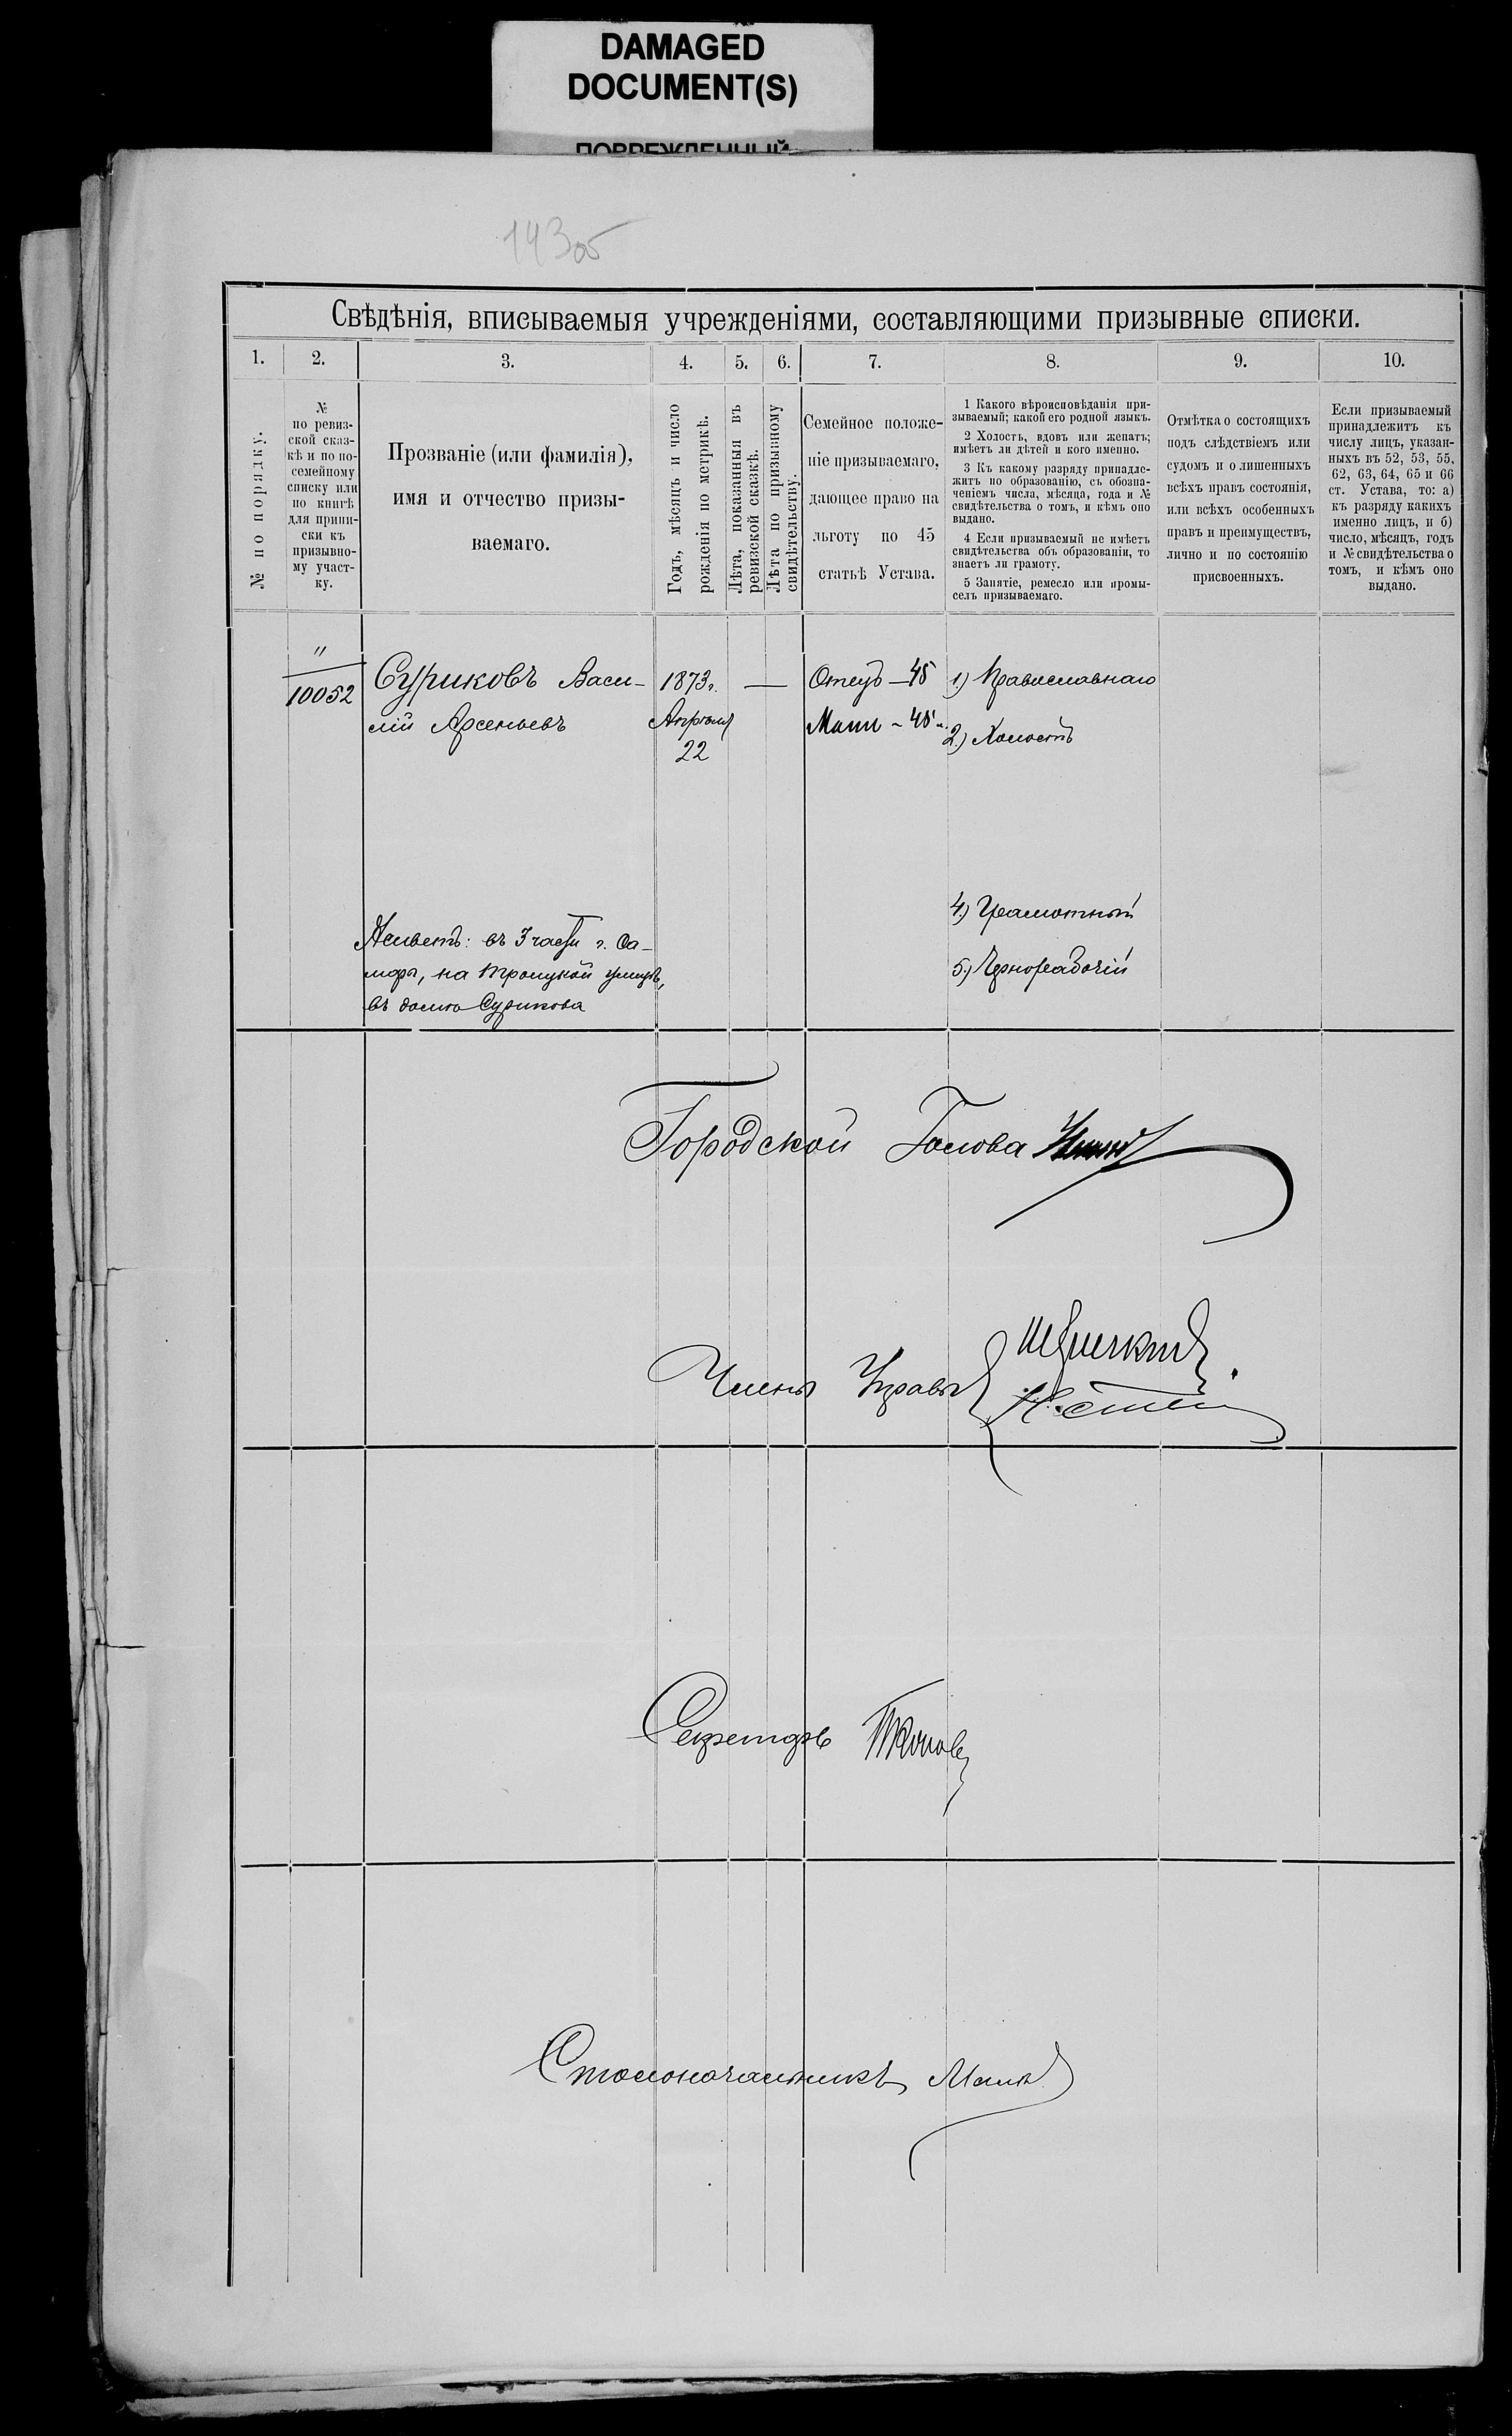 DAMAGED
DOCUMENT(S)
ПОВРЕЖДЕННЫЙ
Свѣдѣнія, вписываемыя учрежденіями, составляющими призывные списки.
1.
2.
3.
4.
5.
6.
7.
8.
9.
10.
№ по порядку.
№
по ревиз-
ской сказ-
кѣ и по по-
семейному
списку или
по книгѣ
для припи-
ски къ
призывно-
му участ-
ку.
Прозваніе (или фамилія),
имя и отчество призы-
ваемаго.
Годъ, мѣсяцъ и число
рожденія по метрикѣ.
Лѣта, показанныя въ
ревизской сказкѣ.
Лѣта по призывному
свидѣтельству.
Семейное положе-
ніе призываемаго,
дающее право на
льготу по 45
статьѣ Устава.
1 Какого вѣроисповѣданія при-
зываемый; какой его родной языкъ.
2 Холостъ, вдовъ или женатъ;
имѣетъ ли дѣтей и кого именно.
3 Къ какому разряду принадле-
житъ по образованію, съ обозна-
ченіемъ числа, мѣсяца, года и №
свидѣтельства о томъ, и кѣмъ оно
выдано.
4 Если призываемый не имѣетъ
свидѣтельства объ образованіи, то
знаетъ ли грамоту.
5 Занятіе, ремесло или промы-
селъ призываемаго.
Отмѣтка о состоящихъ
подъ слѣдствіемъ или
судомъ и о лишенныхъ
всѣхъ правъ состоянія,
или всѣхъ особенныхъ
правъ и преимуществъ,
лично и по состоянію
присвоенныхъ.
Если призываемый
принадлежитъ къ
числу лицъ, указан-
ныхъ въ 52, 53, 55,
62, 63, 64, 65 и 66
ст. Устава, то: а)
къ разряду какихъ
именно лицъ, и б)
число, мѣсяцъ, годъ
и № свидѣтельства о
томъ, и кѣмъ оно
выдано.
"
10052
Суриковъ Васи-
лій Арсеньевъ
1873 г.
Апрѣля
22
—
Отецъ — 48
Мати - 48 "
1) Православнаго
2) Холостъ
4) Грамотный
5) Чернорабочій
Живетъ: въ 3 части г. Са-
мары, на Троицкой улицѣ,
въ домѣ Сурикова
Городской Голова
Члены Управы
Секретарь
Столоначальникъ